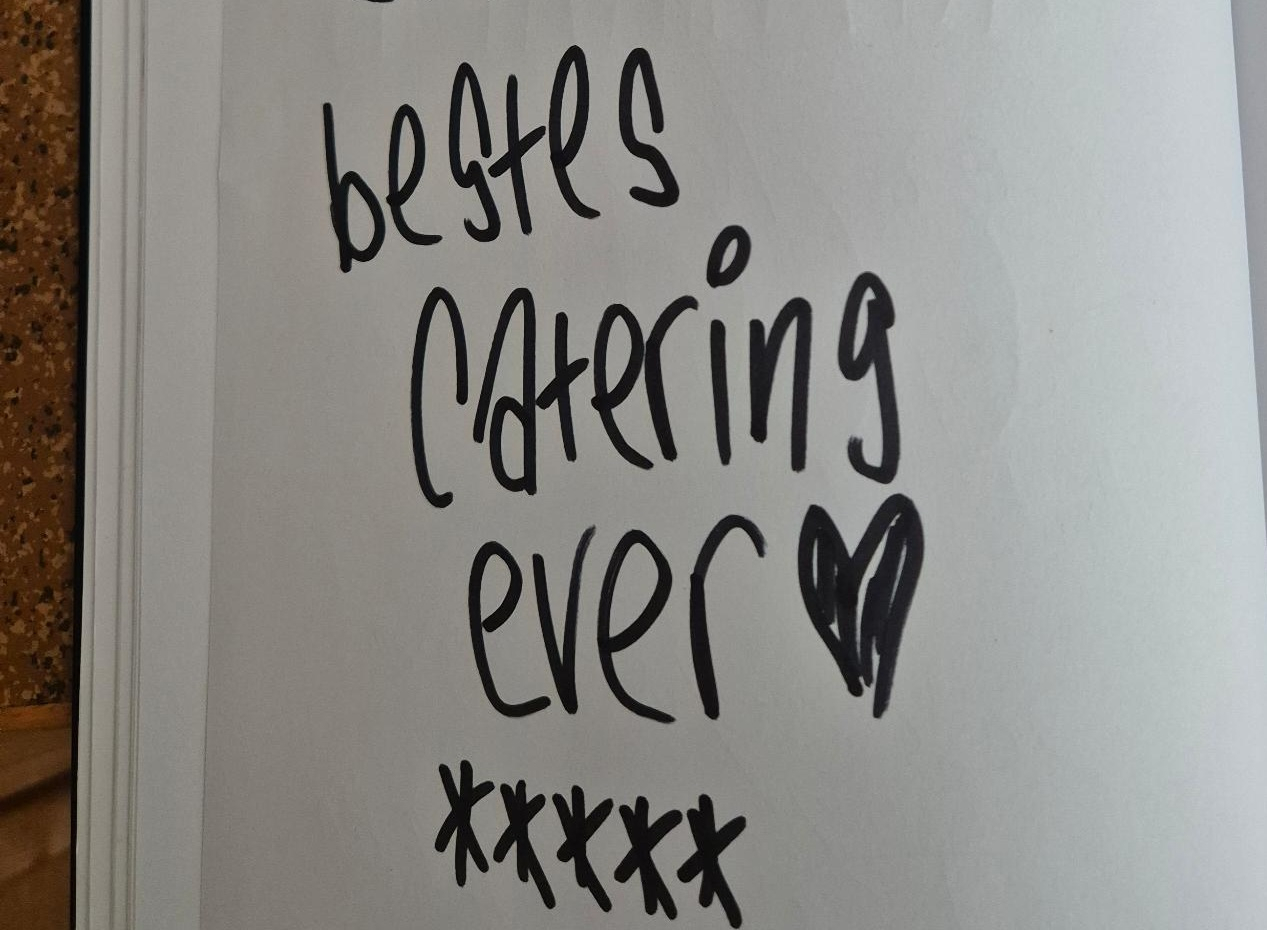 bestes
Catering
ever ♥
*****